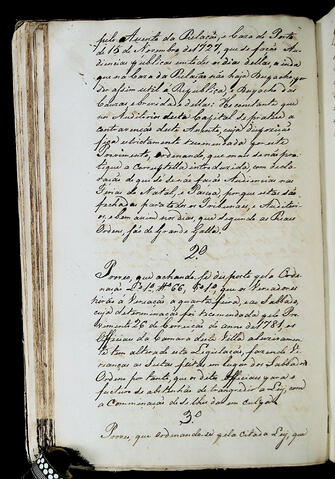 pelo Assento da Relação, e Caza do Porto
de 15 de Novembro de 1727, que se fação Au-
diencias publicas em todos os dias della, ainda
que na Caza da Relação não haja Despacho, por
ser assim util á Republica, e Despacho das
Cauzas e brevidade dellas: He constante que
no Auditorio desta Capital se pratica a
contravenção deste Assento, cuja dispozição
fica estrictamente recomendada por este
Provimento, ordenando, que mais se não pra-
tique a Corruptella introduzida, com decla-
ração de que só se não fação Audiencias nas
Ferias do Natal, e Pascoa, porque estas são
fechadas para todos os Tribunaes, e Auditori-
os, e bem assim nos dias, que segundo as Reaes
Ordens, são de Grande Galla.
2.º
Proveo, que achando-se disposto pela Orde-
nação L.º 1.º tt.º 66, § 1.º que os Vereadores
hirão á Vereação a quarta feira, e ao Sabbado,
cuja determinação foi recomendada pelo Pro-
vimento 26 de Correição do anno de 1781, os
Officiaes da Camara desta Villa abuzivamen-
te tem alterado esta Legislação, fazendo Ve-
reanças as Sextas feiras em lugar dos Sabbados
Ordena por tanto, que os ditos Officiaes para o
futuro se abstenhão de transgredir a Ley, com
a Comminação de se lhes dar em culpa.
3.º
Proveo, que ordenando-se pela citada Ley, que